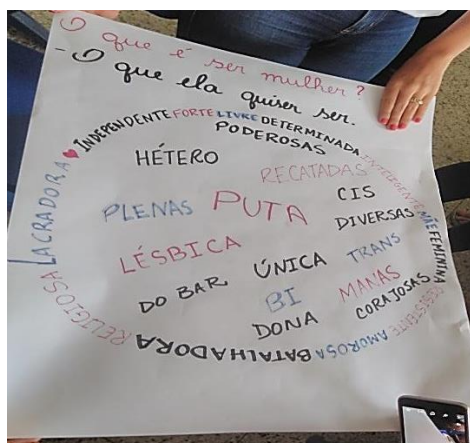 O que é ser mulher?
- O que ela quiser ser.
LACRADORA INDEPENDENTE FORTE LIVRE DETERMINADA INTELIGENTE MÃE FEMININA RESISTENTE AMOROSA BATALHADORA RELIGIOSA
PODEROSAS
HÉTERO
RECATADAS
CIS
PLENAS PUTA DIVERSAS
LÉSBICA TRANS
ÚNICA
DO BAR BI MANAS
DONA CORAJOSAS